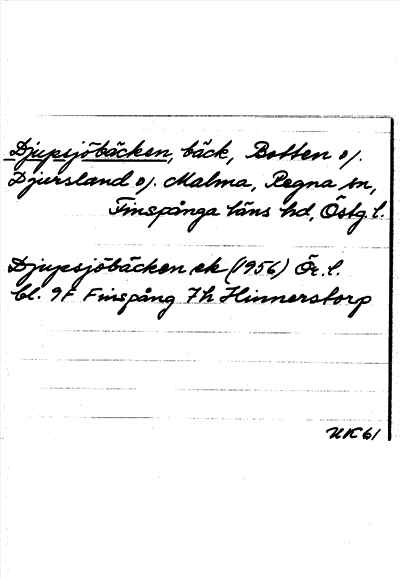 Djupsjöbäcken, bäck, Botten o/.
Djursland o/. Malma, Regna sn,
Finspånga läns hd, Östg.l.
Djupsjöbäcken ek (1956) Ör. l.
bl. 9F Finspång 7h Hinnerstorp
UK 61